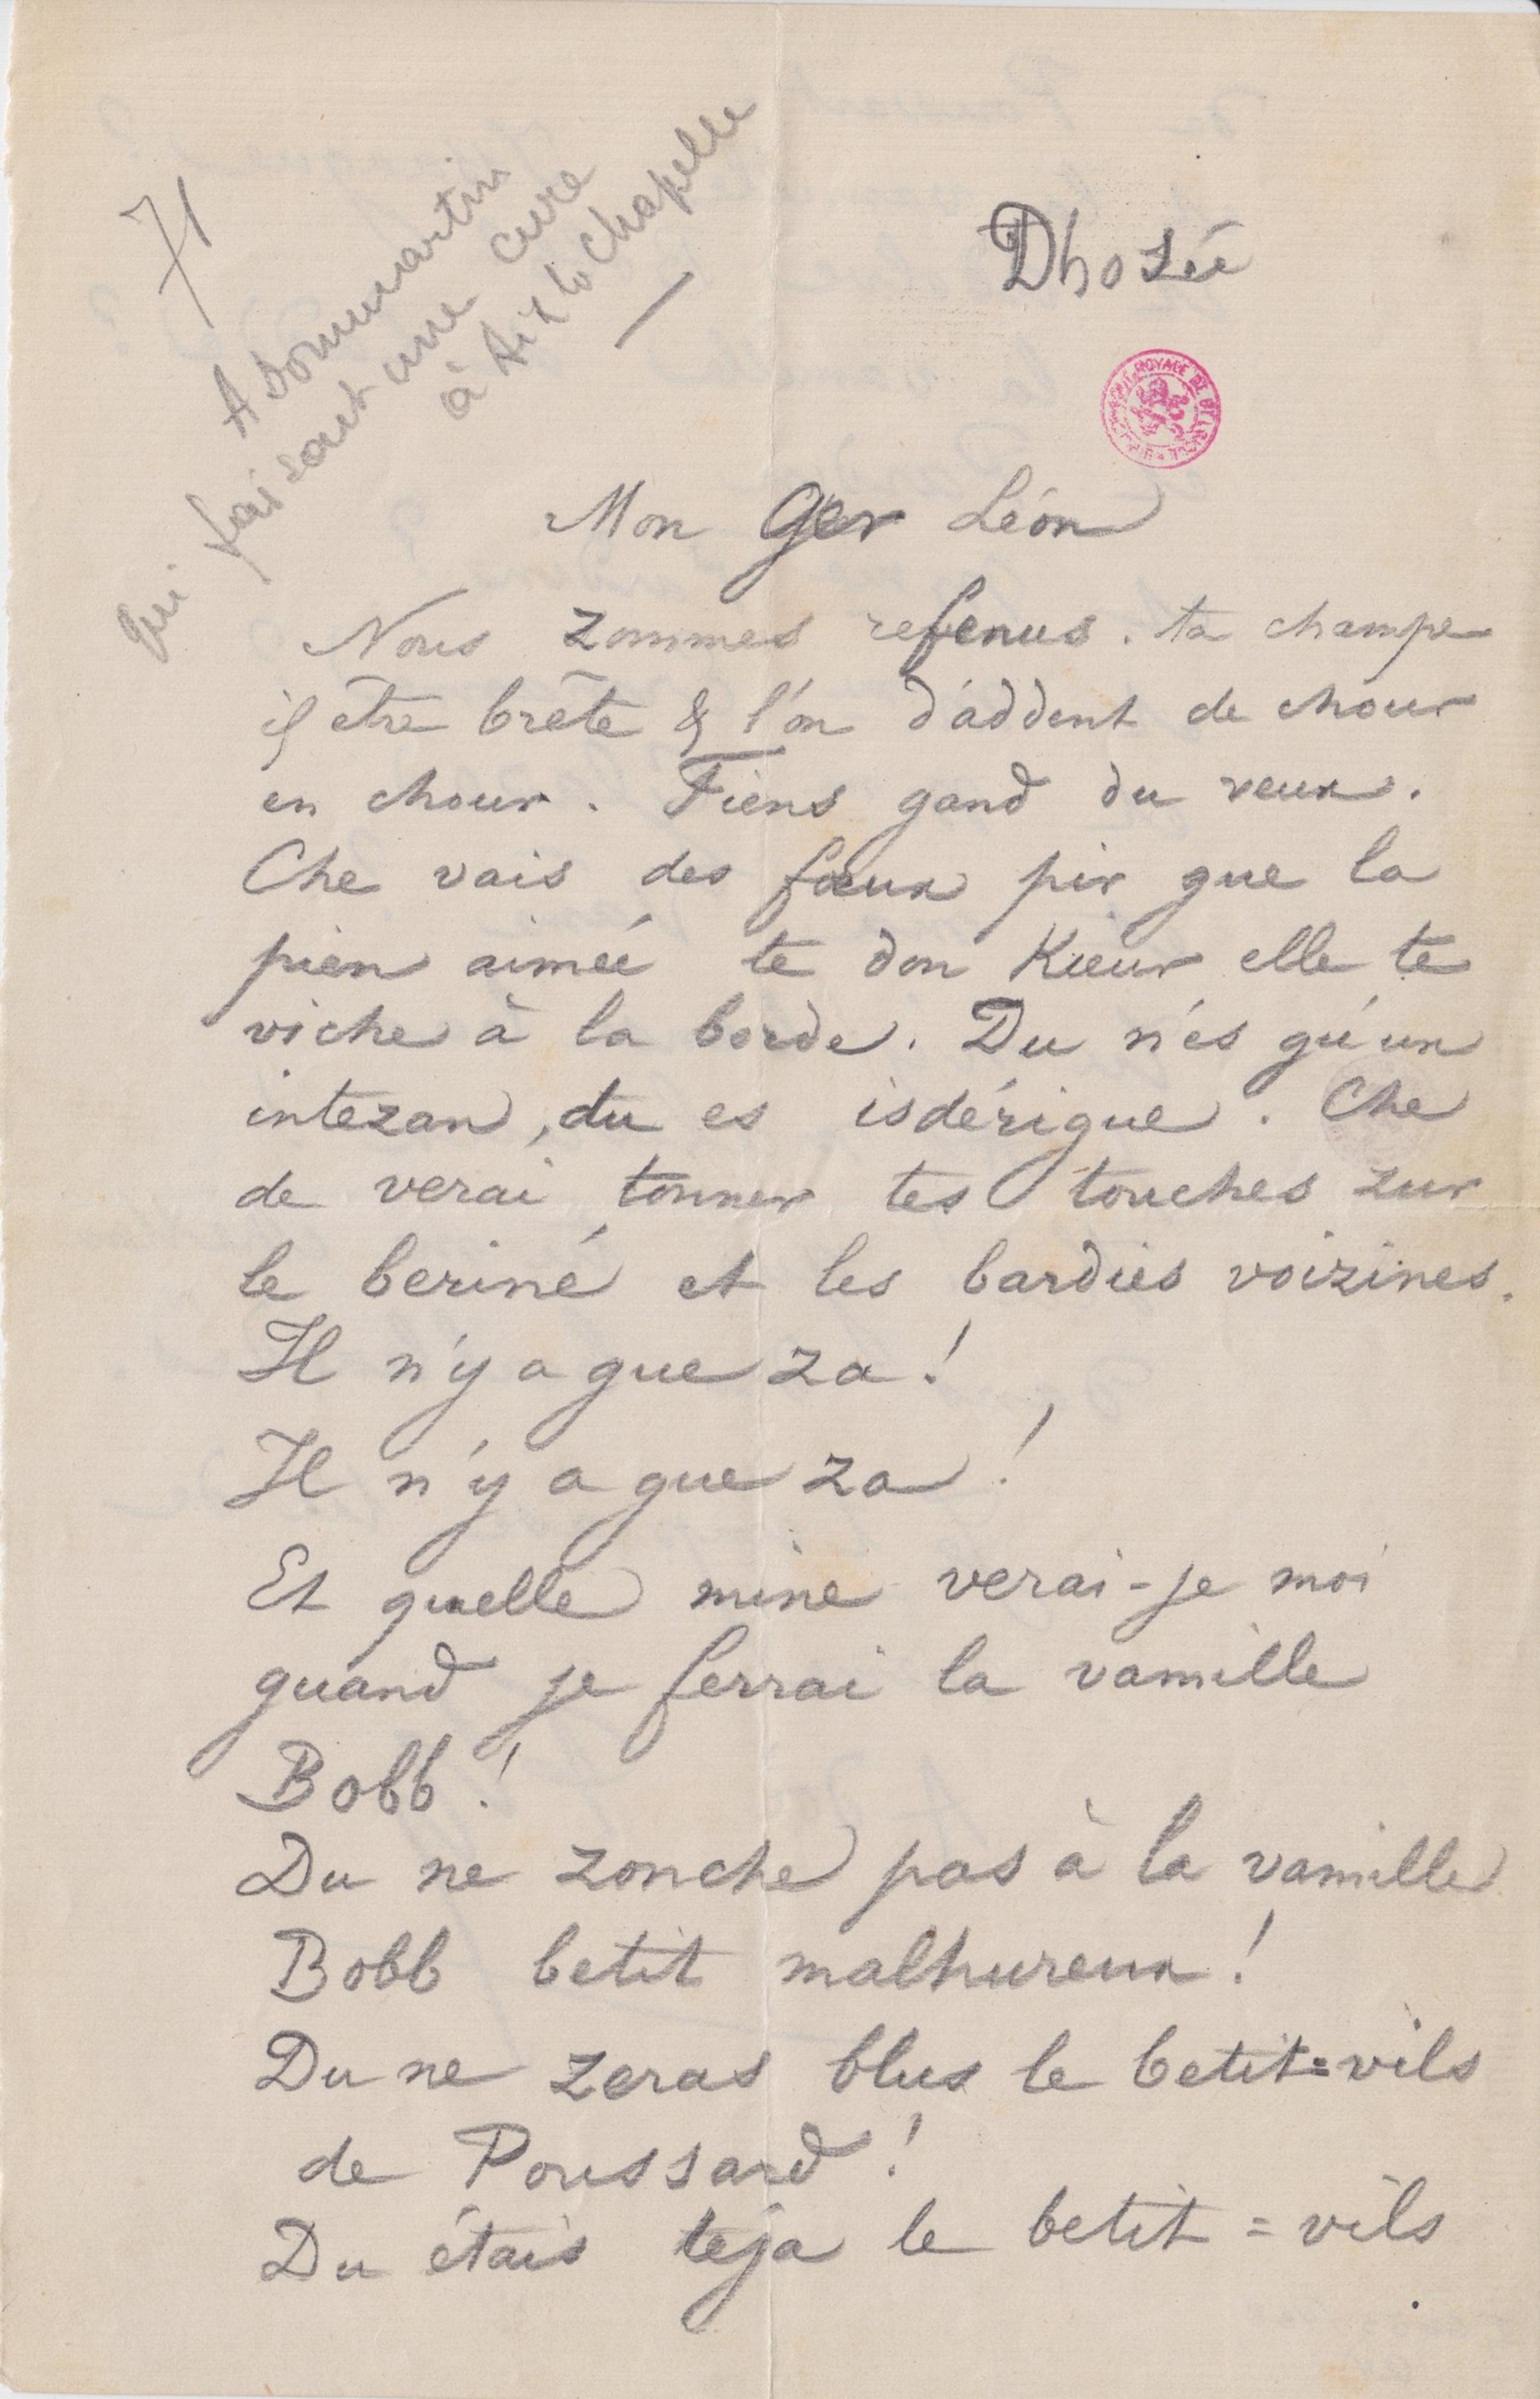 71
A Dommartin
qui faisait une cure
à Aix la Chapelle
Dhozée
Mon Ger Léon
Nous zommes refenus. ta champe
il être brête & l'on d'addent de chour
en chour. Fiens gand du veux.
Che vais des fœux pir gue la
pien aimée te don Kœur elle te
viche à la borde. Du n'es gu'un
intezan, du es isdérigue. Che
de verai tonner tes touches zur
le beriné et les bardies voizines.
Il n'y a gue za!
Il n'y a gue za!
Et guelle mine verai-je moi
quand je ferrai la vamille
Bobb!
Du ne zonche pas à la vamille
Bobb betit malhureux!
Du ne zeras blus le betit=vils
de Poussard!
Du étais téja le betit=vils